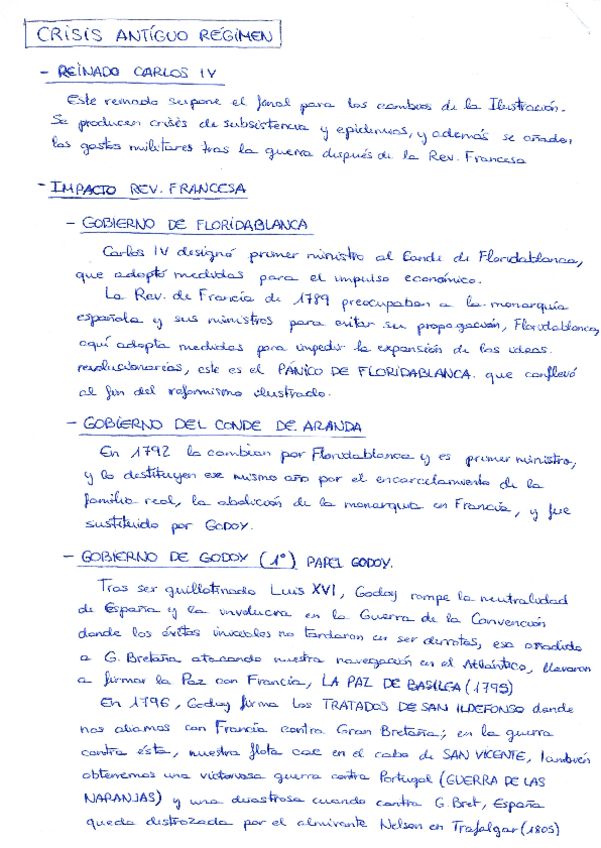 CRISIS ANTÍGUO RÉGIMEN
- REINADO CARLOS IV
Este reinado supone el final para los cambios de la Ilustración.
Se producen crisis de subsistencia y epidemias, y además se añaden
los gastos militares tras la guerra después de la Rev. Francesa
- IMPACTO REV. FRANCESA
- GOBIERNO DE FLORIDABLANCA
Carlos IV designó primer ministro al Conde de Floridablanca,
que adoptó medidas para el impulso económico.
La Rev. de Francia de 1789 preocupaban a la monarquía
española y sus ministros para evitar su propagación, Floridablanca,
aquí adopta medidas para impedir la expansión de las ideas
revolucionarias, este es el PÁNICO DE FLORIDABLANCA que conllevó
al fin del reformismo ilustrado.
- GOBIERNO DEL CONDE DE ARANDA
En 1792 lo cambian por Floridablanca y es primer ministro,
y lo destituyen ese mismo año por el encarcelamiento de la
familia real, la abolición de la monarquía en Francia, y fue
sustituido por GODOY.
- GOBIERNO DE GODOY (1º) PAPEL GODOY.
Tras ser guillotinado Luis XVI, Godoy rompe la neutralidad
de España y la involucra en la Guerra de la Convención
donde los éxitos iniciales no tardaron en ser derrotas, eso añadido
a G. Bretaña atacando nuestra navegación en el Atlántico, llevaron
a firmar la Paz con Francia, LA PAZ DE BASILEA (1795)
En 1796, Godoy firma los TRATADOS DE SAN ILDEFONSO donde
nos aliamos con Francia contra Gran Bretaña; en la guerra
contra ésta, nuestra flota cae en el cabo de SAN VICENTE, también
obtenemos una victoriosa guerra contra Portugal (GUERRA DE LAS
NARANJAS) y una desastrosa cuando contra G. Bret, España
queda destrozada por el almirante Nelson en Trafalgar (1805)